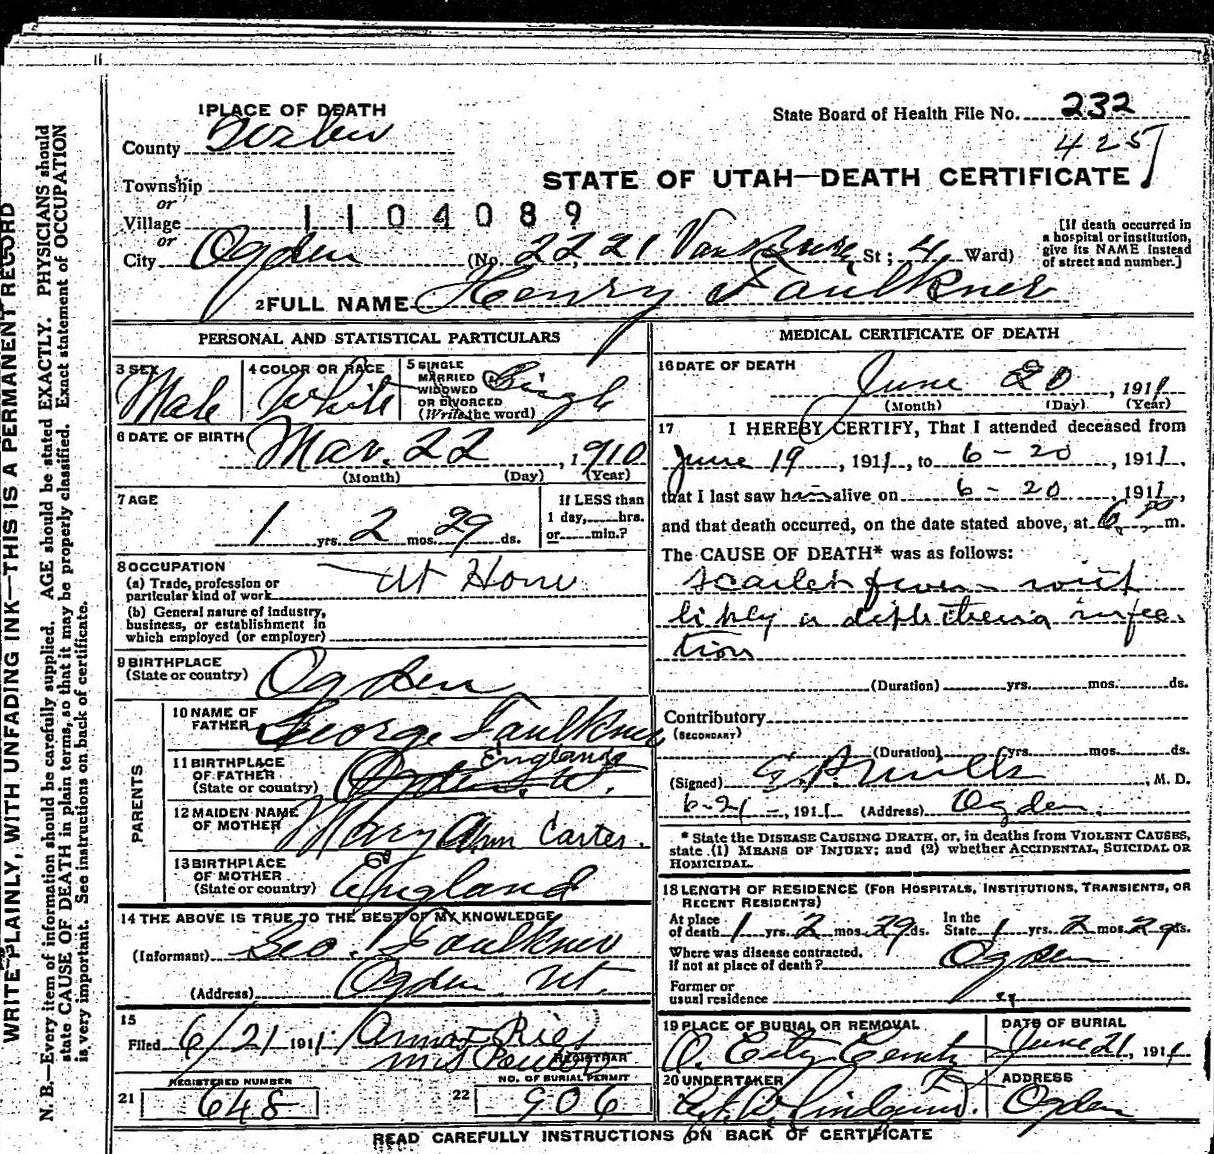 WRITE PLAINLY, WITH UNFADING INK—THIS IS A PERMANENT RECORD
N. B.—Every item of information should be carefully supplied. AGE should be stated EXACTLY. PHYSICIANS should
state CAUSE OF DEATH in plain terms, so that it may be properly classified. Exact statement of OCCUPATION
is very important. See instructions on back of certificate.
1 PLACE OF DEATH
State Board of Health File No. 232
425
County Weber
STATE OF UTAH—DEATH CERTIFICATE
Township
or
Village
1104089
or
City Ogden (No. 2221 Van Buren St; 4 Ward)
[If death occurred in
a hospital or institution,
give its NAME instead
of street and number.]
2 FULL NAME Henry Faulkner
PERSONAL AND STATISTICAL PARTICULARS
3 SEX
Male
4 COLOR OR RACE
White
5 SINGLE
MARRIED
WIDOWED
OR DIVORCED
(Write the word)
Single
6 DATE OF BIRTH
Mar. 22, 1910
(Month) (Day) (Year)
7 AGE
1 yrs. 2 mos. 29 ds.
If LESS than
1 day, hrs.
or min.?
8 OCCUPATION
(a) Trade, profession or
particular kind of work At Home
(b) General nature of industry,
business, or establishment in
which employed (or employer)
9 BIRTHPLACE
(State or country) Ogden
PARENTS
10 NAME OF
FATHER George Faulkner
11 BIRTHPLACE
OF FATHER
(State or country) England
Ogden. U.
12 MAIDEN NAME
OF MOTHER Mary Ann Carter.
13 BIRTHPLACE
OF MOTHER
(State or country) England
14 THE ABOVE IS TRUE TO THE BEST OF MY KNOWLEDGE
(Informant) Geo. Faulkner
(Address) Ogden Ut.
15
Filed 6/21 1911 Anna F Ries
Mrs
REGISTRAR
REGISTERED NUMBER
21 648
NO. OF BURIAL PERMIT
22 906
MEDICAL CERTIFICATE OF DEATH
16 DATE OF DEATH
June 20, 1911
(Month) (Day) (Year)
17 I HEREBY CERTIFY, That I attended deceased from
June 19, 1911, to 6-20, 1911,
that I last saw h alive on 6-20, 1911,
and that death occurred, on the date stated above, at 6 m.
The CAUSE OF DEATH* was as follows:
Scarlet fever
infec-
tion
(Duration) yrs. mos. ds.
Contributory
(SECONDARY)
(Duration) yrs. mos. ds.
(Signed) M. D.
6-21-, 1911 (Address) Ogden.
* State the DISEASE CAUSING DEATH, or, in deaths from VIOLENT CAUSES,
state (1) MEANS OF INJURY; and (2) whether ACCIDENTAL, SUICIDAL OR
HOMICIDAL.
18 LENGTH OF RESIDENCE (FOR HOSPITALS, INSTITUTIONS, TRANSIENTS, OR
RECENT RESIDENTS)
At place
of death 1 yrs. 2 mos. 29 ds.
In the
State 1 yrs. 2 mos. 29 ds.
Where was disease contracted,
if not at place of death? Ogden
Former or
usual residence "
19 PLACE OF BURIAL OR REMOVAL
O. City Cemty
DATE OF BURIAL
June 21, 1911
20 UNDERTAKER
Lindquist.
ADDRESS
Ogden
READ CAREFULLY INSTRUCTIONS ON BACK OF CERTIFICATE